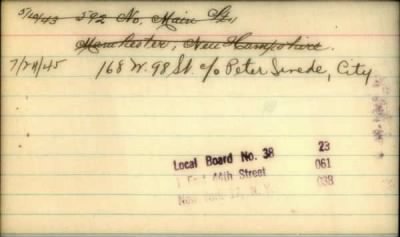 5/20/43 592 No. Main St.
Manchester, New Hampshire.
7/24/45 168 W. 98 St. c/o Peter Swede, City
Local Board No. 38 23
1 East 44th Street 061
New York 17, N. Y. 038